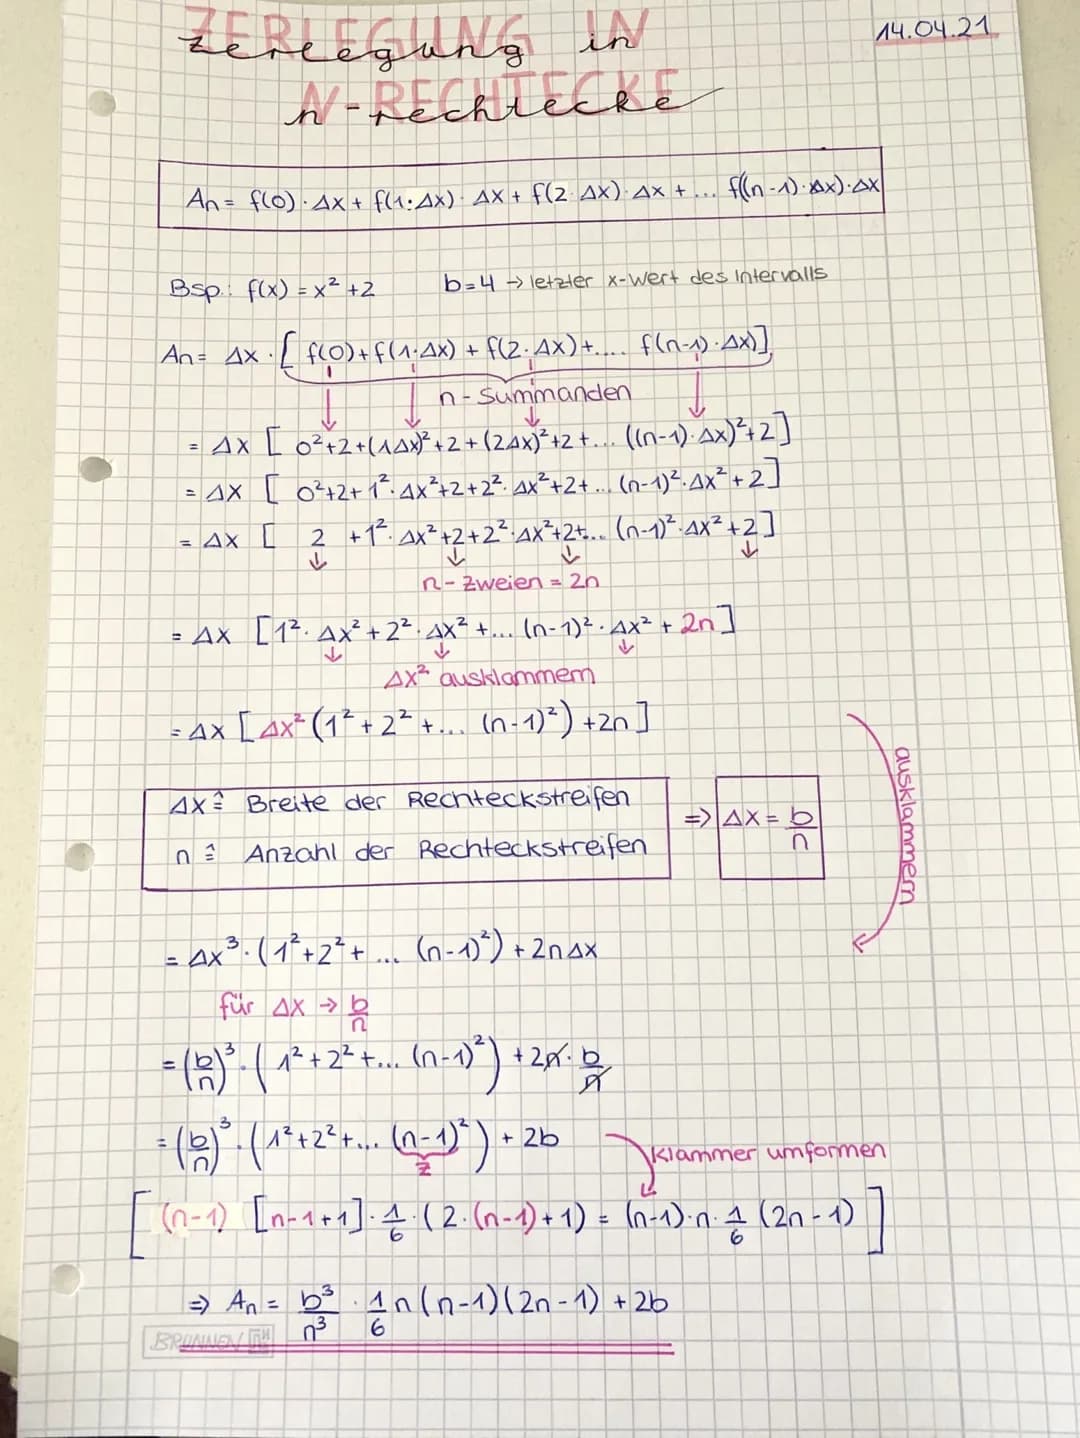 Zerlegung in
n-Rechtecke
14.04.21
An = f(0) · Δx + f(1·Δx) · Δx + f(2·Δx) · Δx + ... f((n-1)·Δx)·Δx
Bsp.: f(x) = x² +2 b=4 → letzter x-Wert des Intervalls
An = Δx · [ f(0)+f(1·Δx) + f(2·Δx)+.... f(n-1)·Δx)]
n-Summanden
= Δx [ 0²+2+(1Δx)²+2+(2Δx)²+2+... ((n-1)·Δx)²+2]
= Δx [ 0²+2+1²·Δx²+2+2²·Δx²+2+... (n-1)²·Δx²+2]
= Δx [ 2 +1²·Δx²+2+2²·Δx²+2+... (n-1)²·Δx²+2]
n-Zweien = 2n
= Δx [1²·Δx²+2²·Δx²+... (n-1)²·Δx² + 2n]
Δx² ausklammern
= Δx [Δx² (1²+2²+... (n-1)²) +2n]
ausklammern
Δx ≙ Breite der Rechteckstreifen
n ≙ Anzahl der Rechteckstreifen
=> Δx = b/n
= Δx³·(1²+2²+ ... (n-1)²) + 2nΔx
für Δx → b/n
= (b/n)³·(1²+2²+... (n-1)²) +2n·b/n
= (b/n)³·(1²+2²+... (n-1)²) + 2b
z
Klammer umformen
[(n-1) [n-1+1]·1/6·(2·(n-1)+1) = (n-1)·n·1/6 (2n-1)]
=> An = b³/n³ · 1/6 n(n-1)(2n-1) + 2b
BRUNNEN